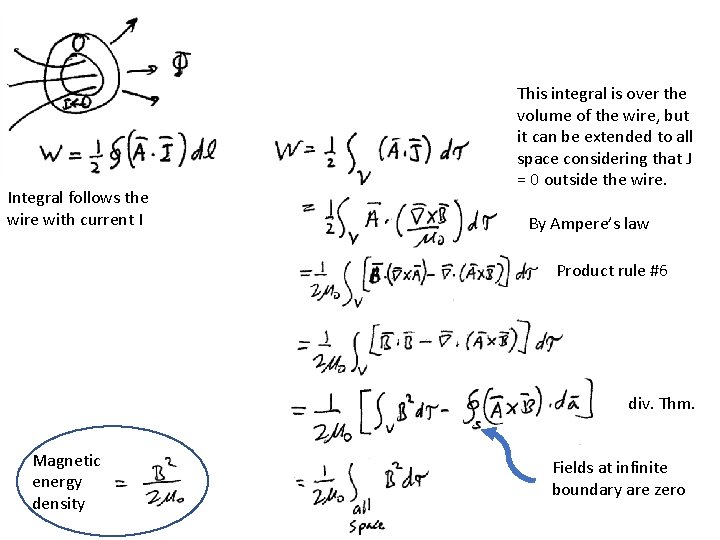 I
Φ̄
W = 1/2 ∮(Ā·Ī) dl
Integral follows the
wire with current I
W = 1/2 ∫_V (Ā·J̄) dτ
This integral is over the
volume of the wire, but
it can be extended to all
space considering that J
= 0 outside the wire.
= 1/2 ∫_V Ā·(∇̄×B̄/μ₀) dτ
By Ampere’s law
= 1/2μ₀ ∫_V [B̄·(∇̄×Ā) − ∇̄·(Ā×B̄)] dτ
Product rule #6
= 1/2μ₀ ∫_V [B̄·B̄ − ∇̄·(Ā×B̄)] dτ
= 1/2μ₀ [∫_V B² dτ − ∮_S (Ā×B̄)·dā]
div. Thm.
Magnetic
energy
density
= B²/2μ₀
= 1/2μ₀ ∫_all space B² dτ
Fields at infinite
boundary are zero